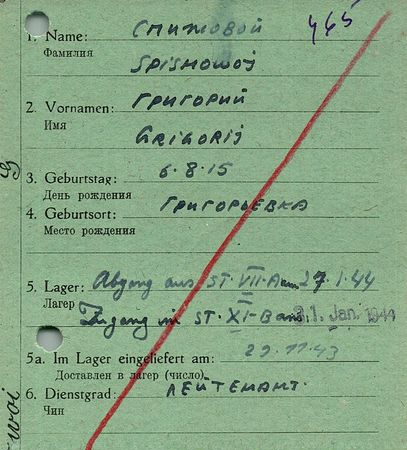 465
1. Name: СПИЖОВОЙ
Фамилия
SPISHOWOJ
2. Vornamen: ГРИГОРИЙ
Имя
GRIGORIJ
3. Geburtstag: 6·8·15
День рождения
4. Geburtsort: ГРИГОРЬЕВКА
Место рождения
5. Lager: Abgang aus ST·VII·A am 27.1.44
Лагер
Zugang in ST·XI-B am 31. Jan. 1944
5a. Im Lager eingeliefert am: 29·11·43
Доставлен в лагер (число)
6. Dienstgrad: ЛЕЙТЕНАНТ·
Чин